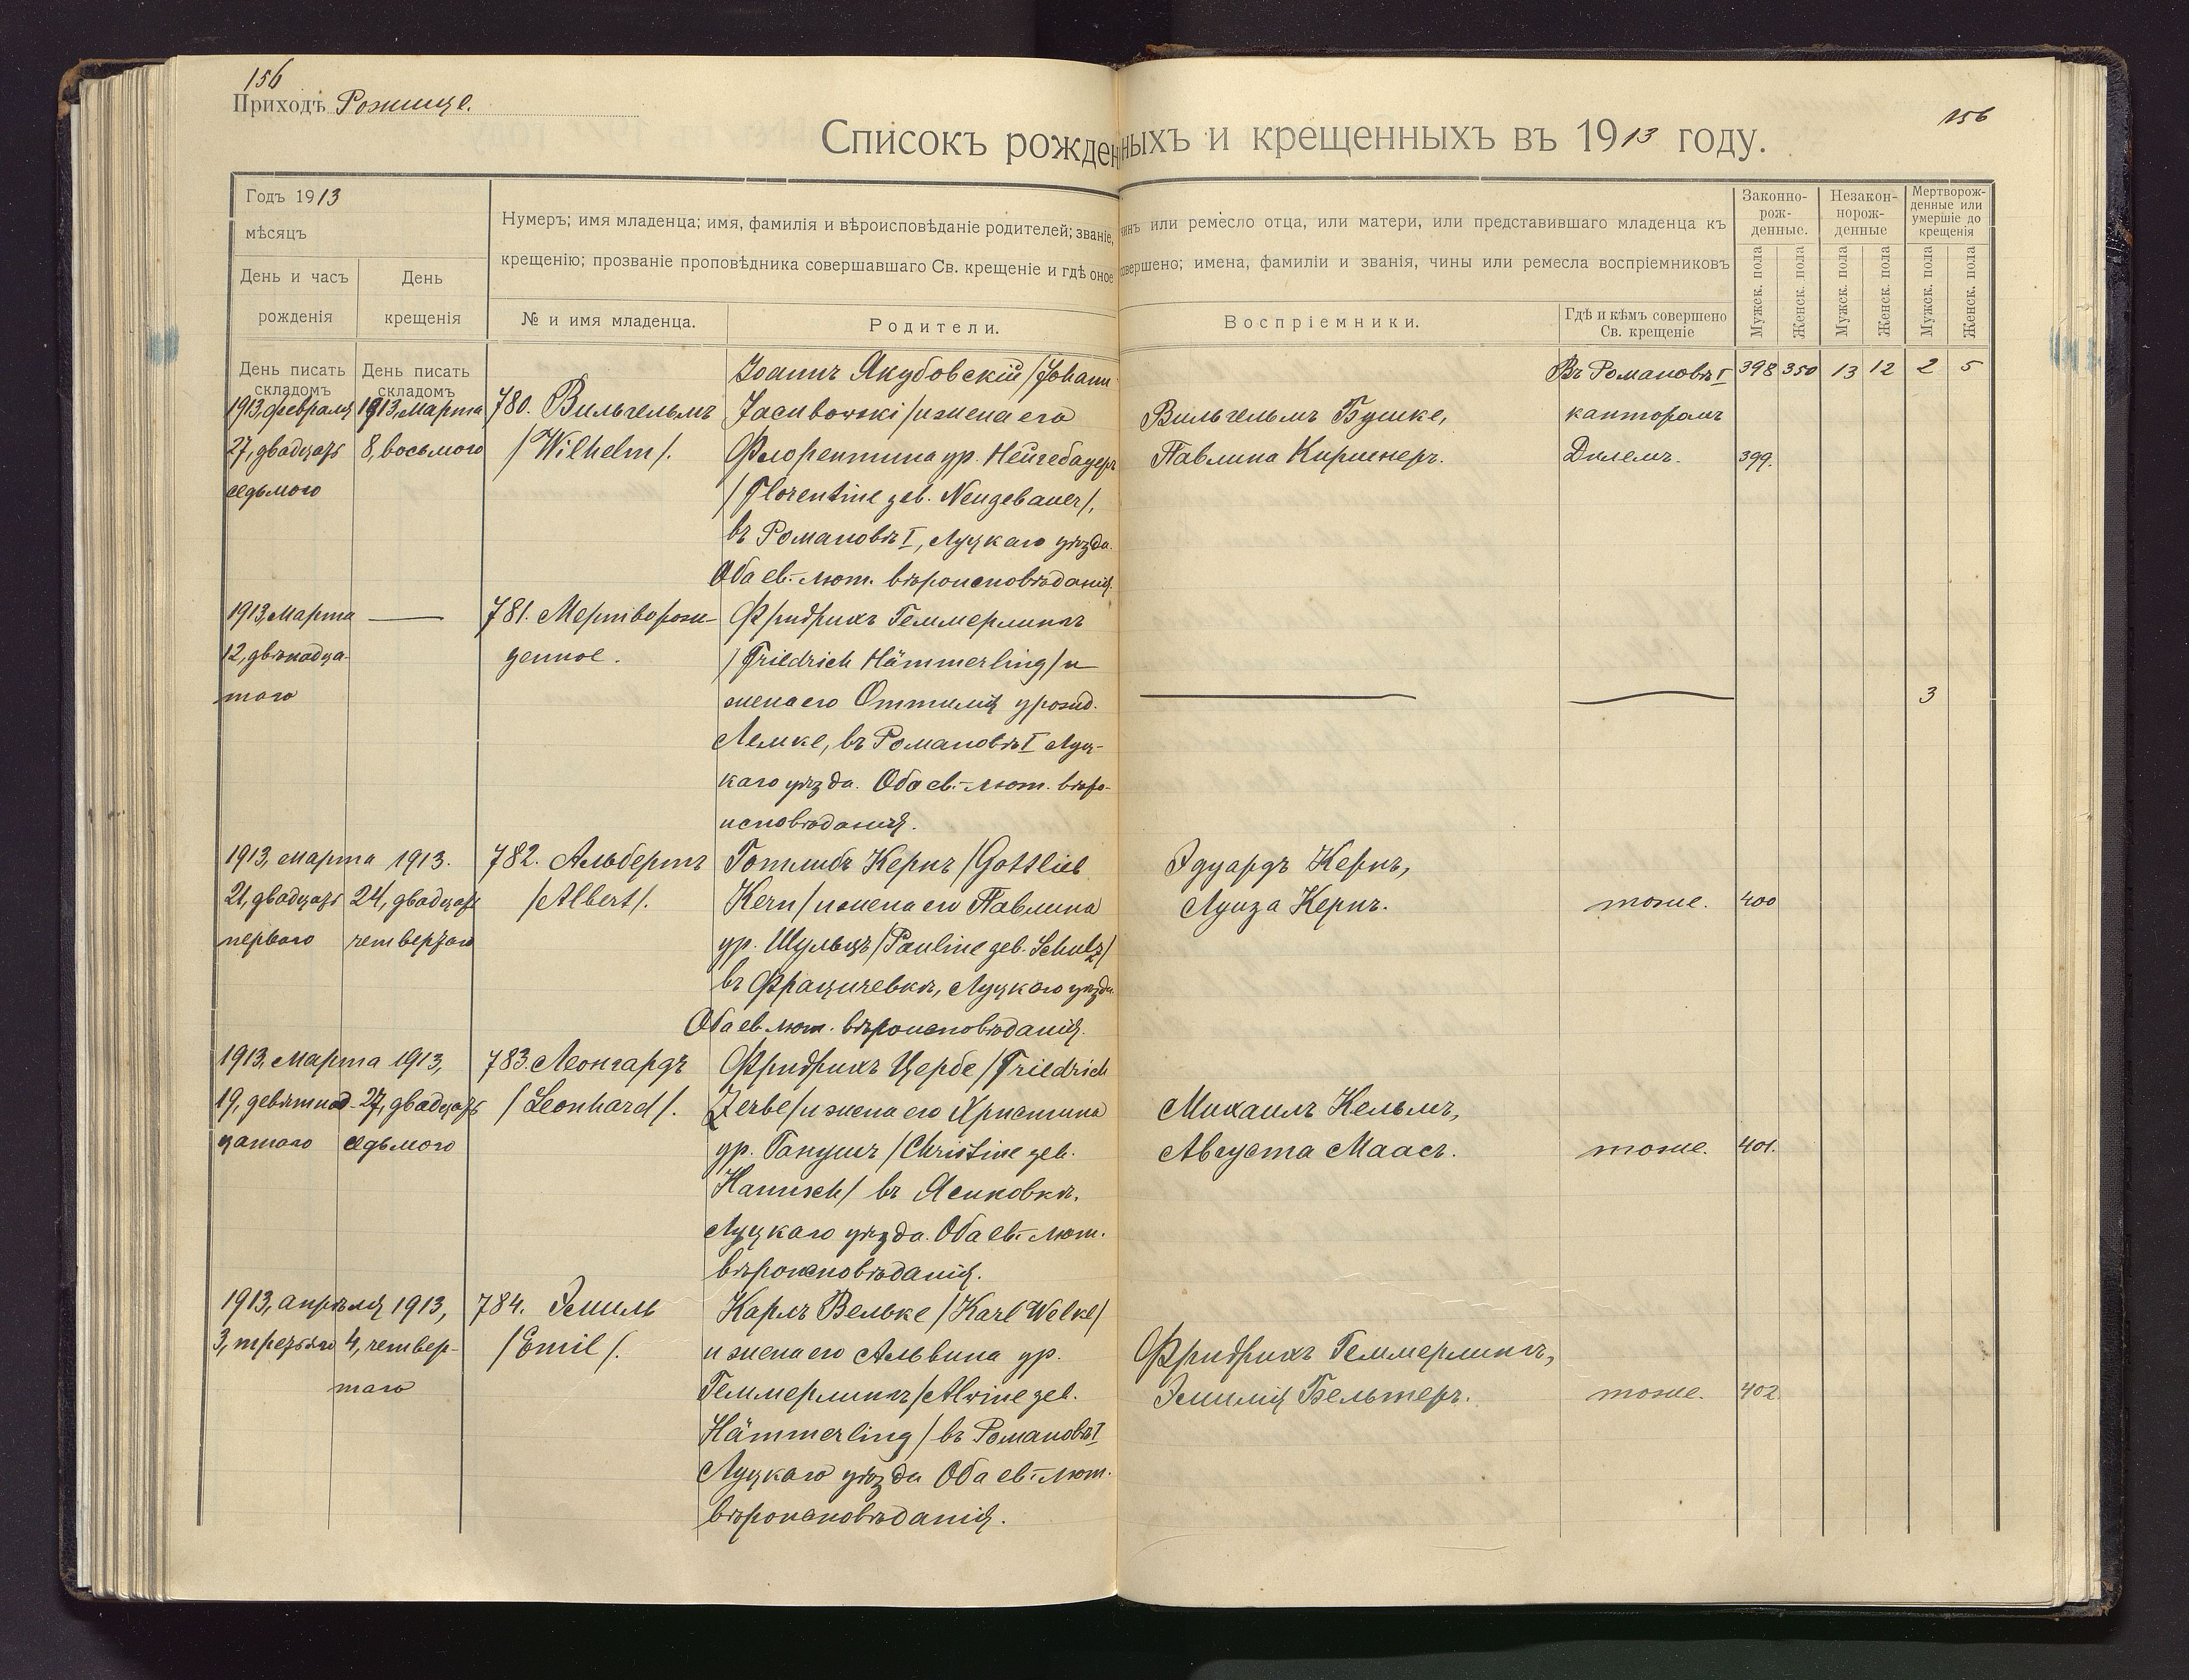 156
Приходъ Рожище.
156
Списокъ рожденныхъ и крещенныхъ въ 1913 году.
Годъ 1913
мѣсяцъ
День и часъ рожденія
День крещенія
Нумеръ; имя младенца; имя, фамилія и вѣроисповѣданіе родителей; званіе, чинъ или ремесло отца, или матери, или представившаго младенца къ
крещенію; прозваніе проповѣдника совершавшаго Св. крещеніе и гдѣ оное совершено; имена, фамиліи и званія, чины или ремесла воспріемниковъ
№ и имя младенца.
Родители.
Воспріемники.
Гдѣ и кѣмъ совершено
Св. крещеніе
Законно-
рож-
денные.
Незакон-
норож-
денные
Мертворож-
денные или
умершіе до
крещенія
Мужск. пола
Женск. пола
Мужск. пола
Женск. пола
Мужск. пола
Женск. пола
День писать
складомъ
День писать
складомъ
398 350 13 12 2 5
1913, февраля
27, двадцать
седьмого
1913, Марта
8, восьмого
780. Вильгельмъ
/Wilhelm/.
Іоаннъ Якубовскій /Johann
Jacubowski/ и жена его
Флорентина ур. Нейгебауеръ
/Florentine geb. Neugebauer/,
въ Романовѣ I, Луцкаго уѣзда.
Оба ев.-лют. вѣроисповѣданія.
Вильгельмъ Бушке,
Павлина Киршнеръ.
Въ Романовѣ I
канторомъ
Дилемъ.
399.
1913, Марта
12, двѣнадца-
таго
—
781. Мертворож-
денное.
Фридрихъ Геммерлингъ
/Friedrich Hämmerling/ и
жена его Оттилія урожд.
Лемке, въ Романовѣ I Луц-
каго уѣзда. Оба ев.-лют. вѣро-
исповѣданія.
3
1913, марта
21, двадцать
перваго
1913.
24, двадцать
четвертаго
782. Альбертъ
/Albert/.
Готлибъ Кернъ /Gottlieb
Kern/ и жена его Павлина
ур. Шульцъ /Pauline geb. Schulz/
въ Фрацичевкѣ, Луцкаго уѣзда.
Оба ев. лют. вѣроисповѣданія.
Эдуардъ Кернъ,
Луиза Кернъ.
тоже.
400
1913, Марта
19, девятнад-
цатаго
1913,
27, двадцать
седьмого
783. Леонгардъ
/Leonhard/.
Фридрихъ Цербе /Friedrich
Zerbe/ и жена его Христина
ур. Ганушъ /Christine geb.
Hanusch/ въ Ясиновкѣ,
Луцкаго уѣзда. Оба ев.-лют.
вѣроисповѣданія.
Михаилъ Кельмъ,
Августа Маасъ.
тоже.
401.
1913, апрѣля
3, третьяго
1913,
4, четвер-
таго
784. Эмиль
/Emil/.
Карлъ Вельке /Karl Welke/
и жена его Альвина ур.
Геммерлингъ /Alwine geb.
Hämmerling/ въ Романовѣ I
Луцкаго уѣзда Оба ев.-лют.
вѣроисповѣданія.
Фридрихъ Геммерлингъ,
Эмилія Бельтеръ.
тоже.
402.